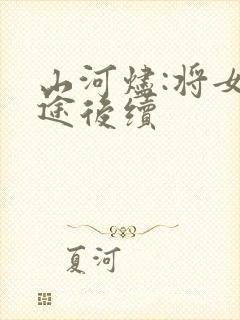 山河燼:將女
途後續
夏河